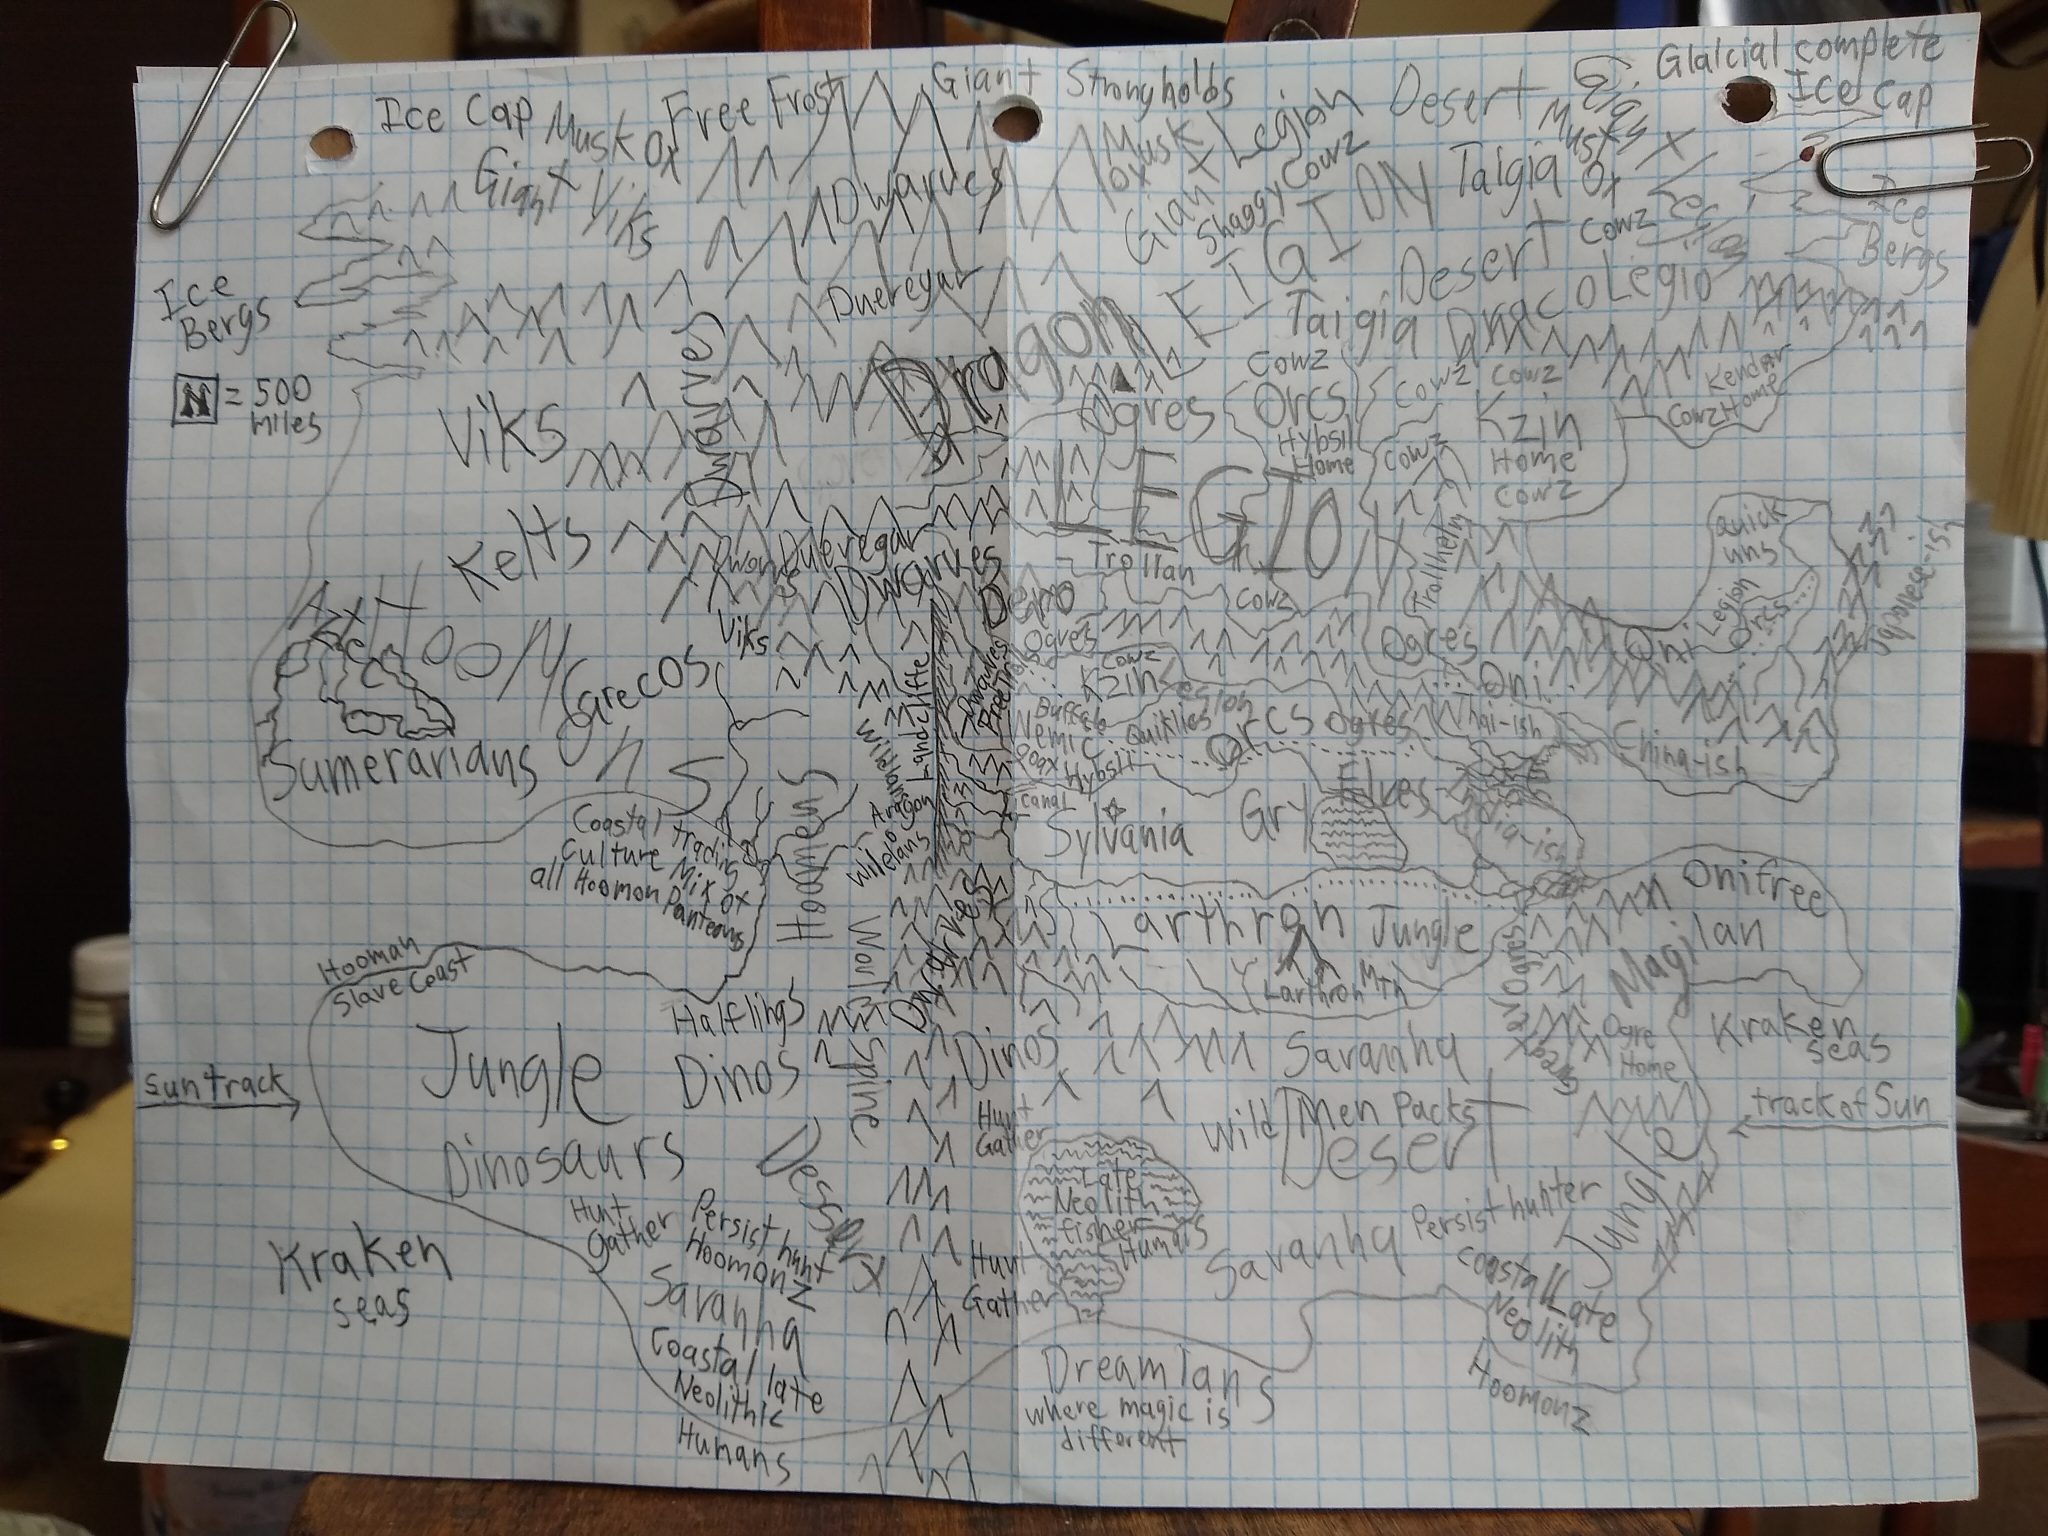 Ice Cap
Musk Ox
Free Frost
Giant Strongholds
Glalcial complete
Ice Cap
Giant Viks
Dwarves
Musk
ox
Giant Legion
Shaggy Cowz
Desert
Musk
Ox
Cowz
Legion
LEIGION
Taigia
Ice
Bergs
Ice
Bergs
Dueregar
Desert
Taigia
DracoLegio
= 500
miles
Viks
Dwarves
Dragon
Ogres
Cowz
Orcs
Hybsil
Home
Cowz
Cowz
Cowz
Kzin
Home
Cowz
Kendar
Home
Cowz
LEGION
Kelts
Dueregar
Dwarves
Viks
Trollan
Trollhelm
Cowz
Quick
uns
Legion
Orcs
Japanese-ish
Aztec
HOOMANS
Garecos
Sumerarians
Dero
Ogres
Cowz
Kzin
Legion
Buffalo
Nemic
Hybsil
Quiklies
Orcs
Ogres
Ogres
Oni
Oni
Thai-ish
China-ish
India-ish
Landcliffe
Canal
Sylvania
Gry Elves
Coastal Trading
Culture Mix of
all Hoomon Panteons
Hoomens
Aragon
Wilelans
Dwarves
Larthron Jungle
Larthron Mtn
Onifree
lan
Magi
Ogre
Home
Hooman
Slave Coast
Halflings
World Spine
Jungle
Dinos
Dinos
Savanha
Kraken
seas
sun track
track of Sun
Hunt
Gather
Wild Men Packs
Desert
Dinosaurs
Dessert
Late
Neolith
fisher
Humans
Hunt
Gather
Persist hunt
Hoomonz
Hunt
Gather
Savanha
Persist hunter
Jungle
Kraken
seas
Savanha
Coastal Late
Neolith
Hoomonz
Coastal late
Neolithic
Humans
Dreamlans
where magic is
different